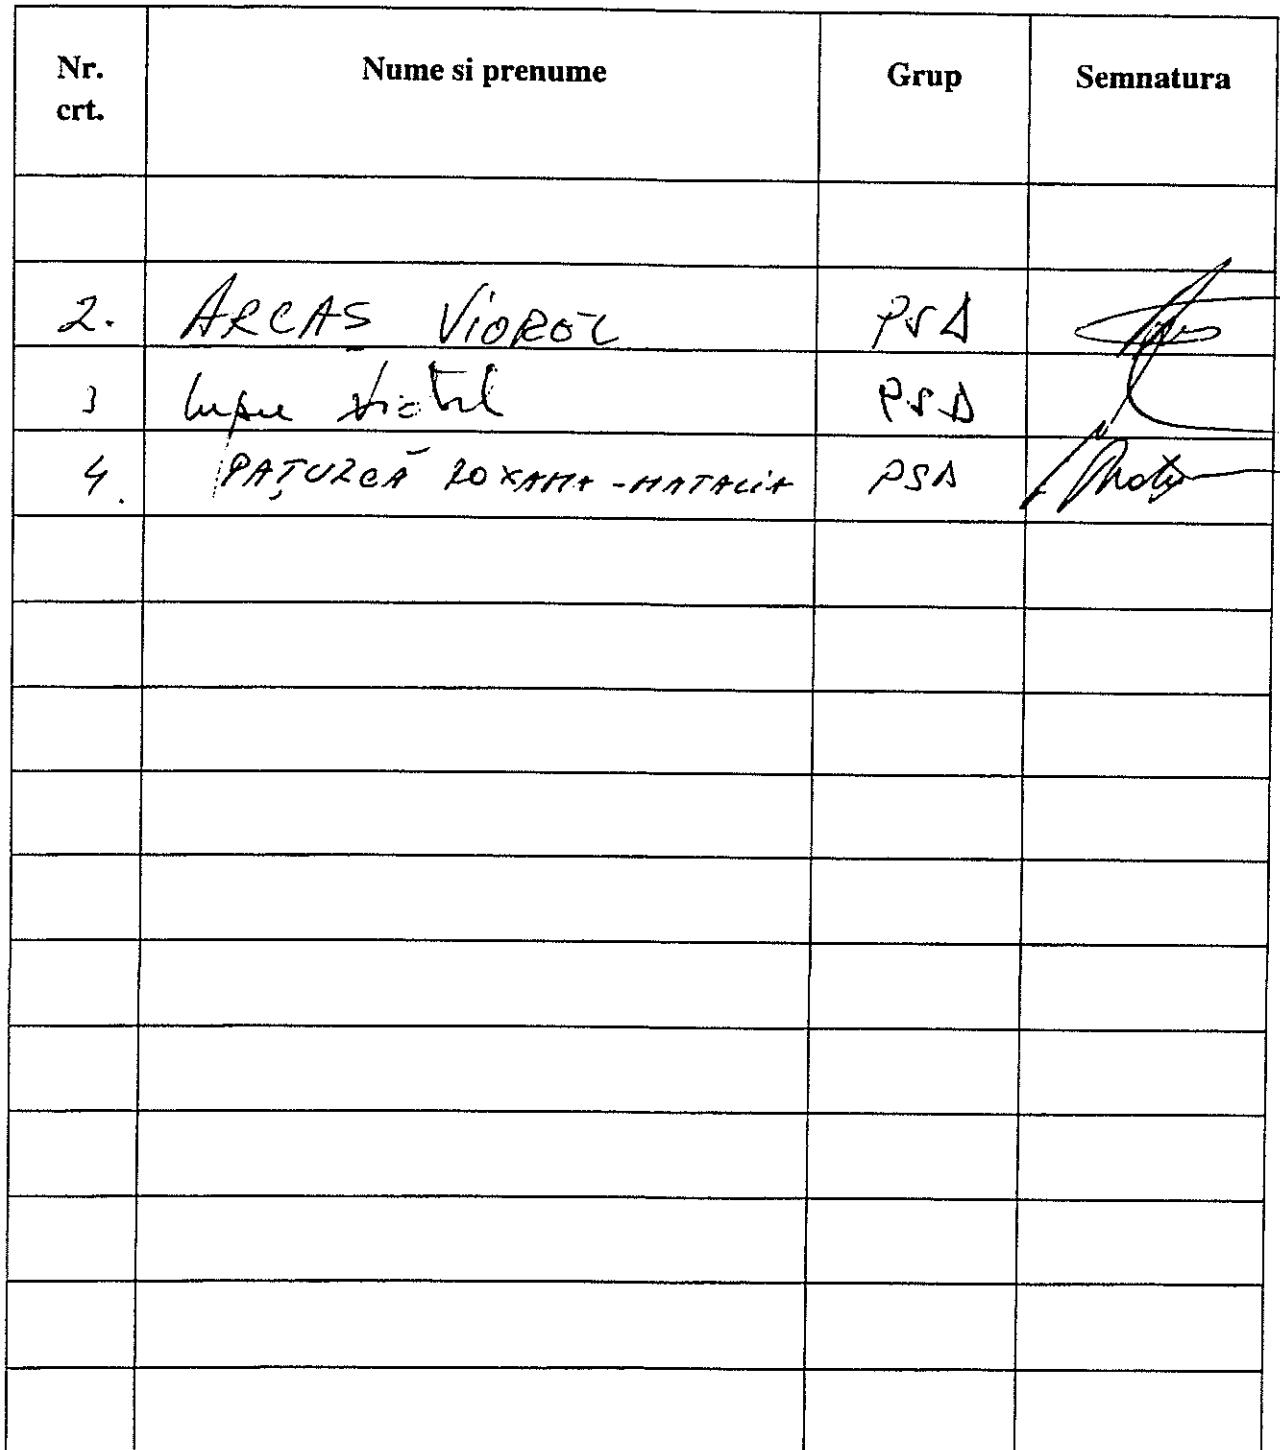 Nr. crt. Nume si prenume Grup Semnatura
2. ARCAȘ VIOREL PSD
3 Lupu Victor PSD
4. PAȚURCĂ ROXANA-NATALIA PSD